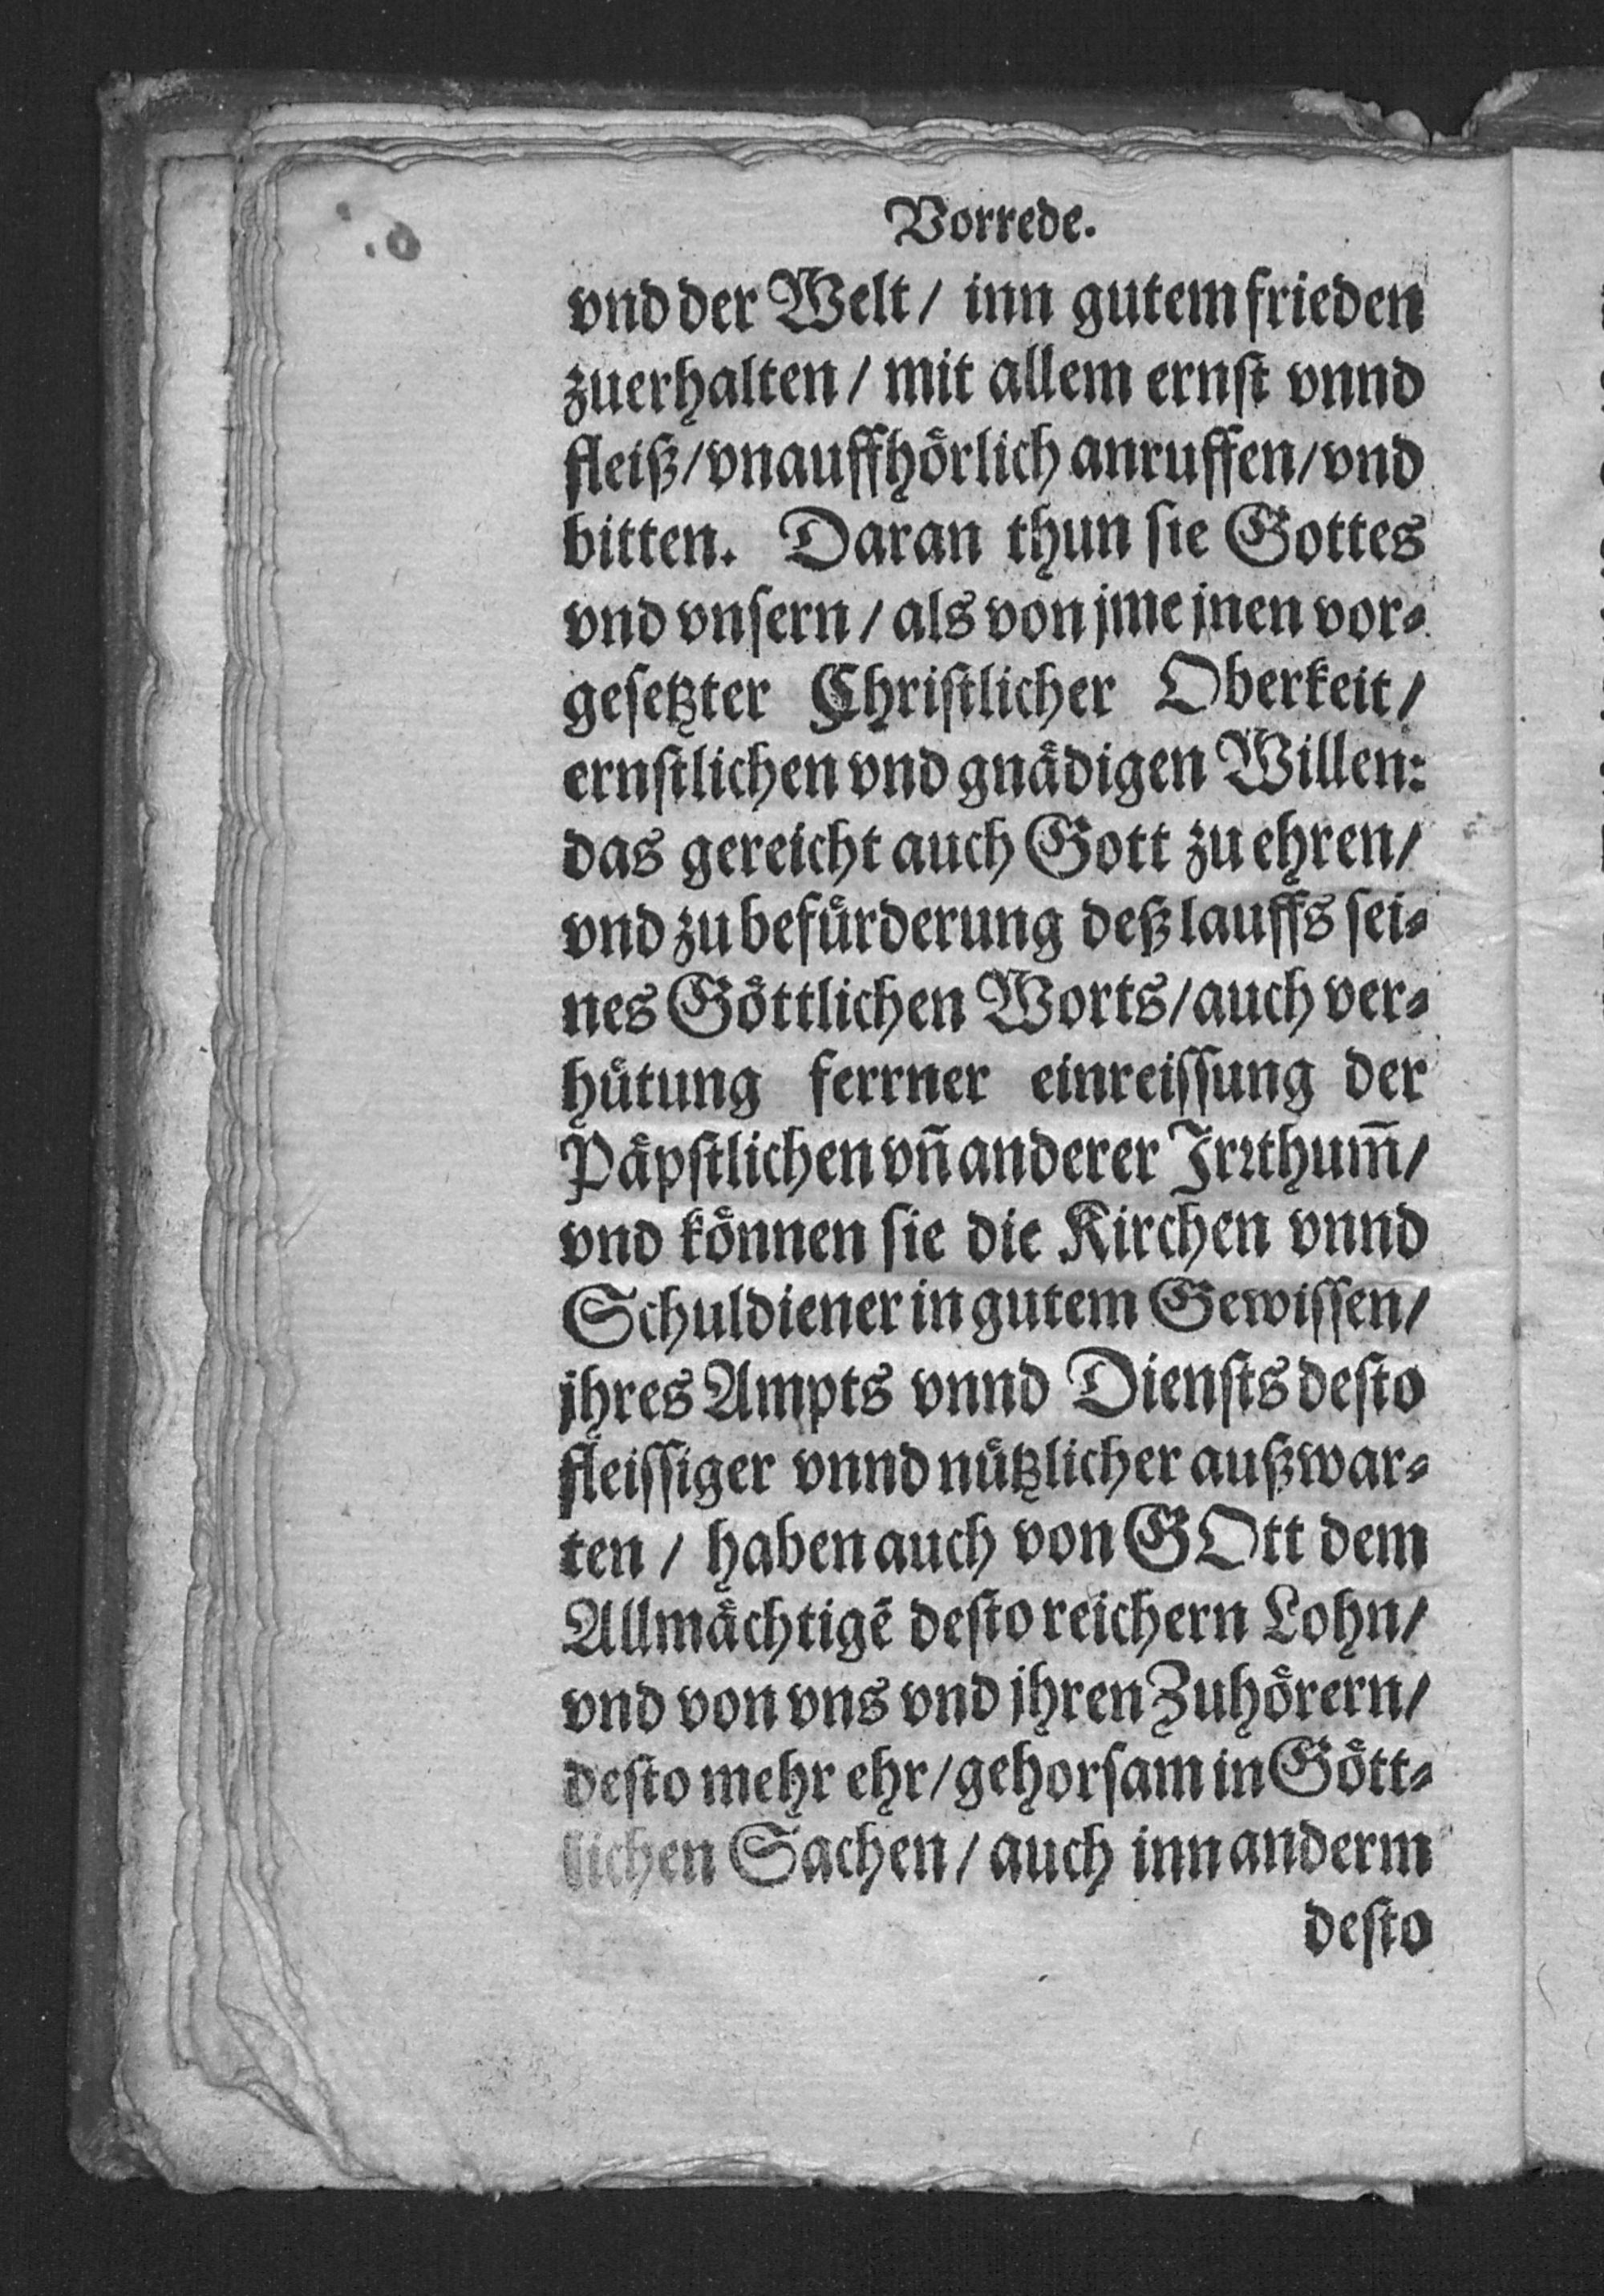 Vorrede.
vnd der Welt/ inn gutem frieden
zuerhalten/ mit allem ernſt vnnd
fleiß/vnauffhoͤrlich anruffen/vnd
bitten. Daran thun ſie Gottes
vnd vnſern/ als von jme jnen vor⸗
geſetzter Chriſtlicher Oberkeit/
ernſtlichen vnd gnaͤdigen Willen:
das gereicht auch Gott zu ehren/
vnd zu befuͤrderung deß lauffs ſei⸗
nes Goͤttlichen Worts/auch ver⸗
huͤtung ferrner einreiſſung der
Paͤpſtlichen vn̄ anderer Jrꝛthum̄/
vnd koͤnnen ſie die Kirchen vnnd
Schuldiener in gutem Gewiſſen/
jhres Ampts vnnd Dienſts deſto
fleiſſiger vnnd nuͤtzlicher außwar⸗
ten/ haben auch von GOtt dem
Allmaͤchtigē deſto reichern Lohn/
vnd von vns vnd jhren Zuhoͤrern/
deſto mehr ehr/gehorſam in Goͤtt⸗
lichen Sachen/ auch inn anderm
deſto